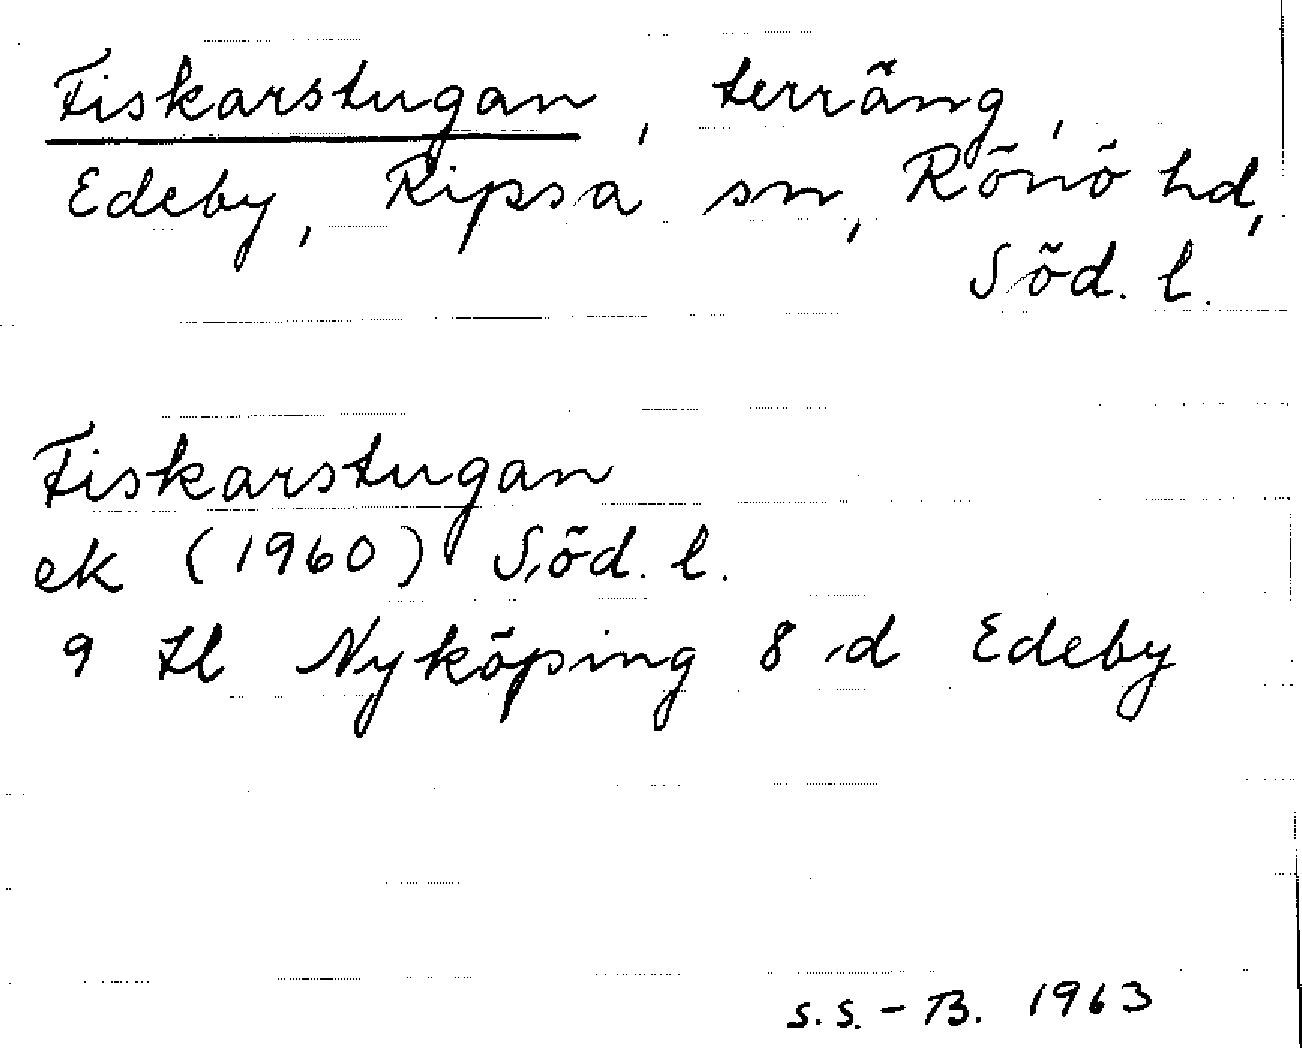 Fiskarstugan, terräng,
Edeby, Ripsa sn, Rönö hd,
Söd. l.
Fiskarstugan
ek (1960) Söd. l.
9 H Nyköping 8 d Edeby
S.S.-B. 1963